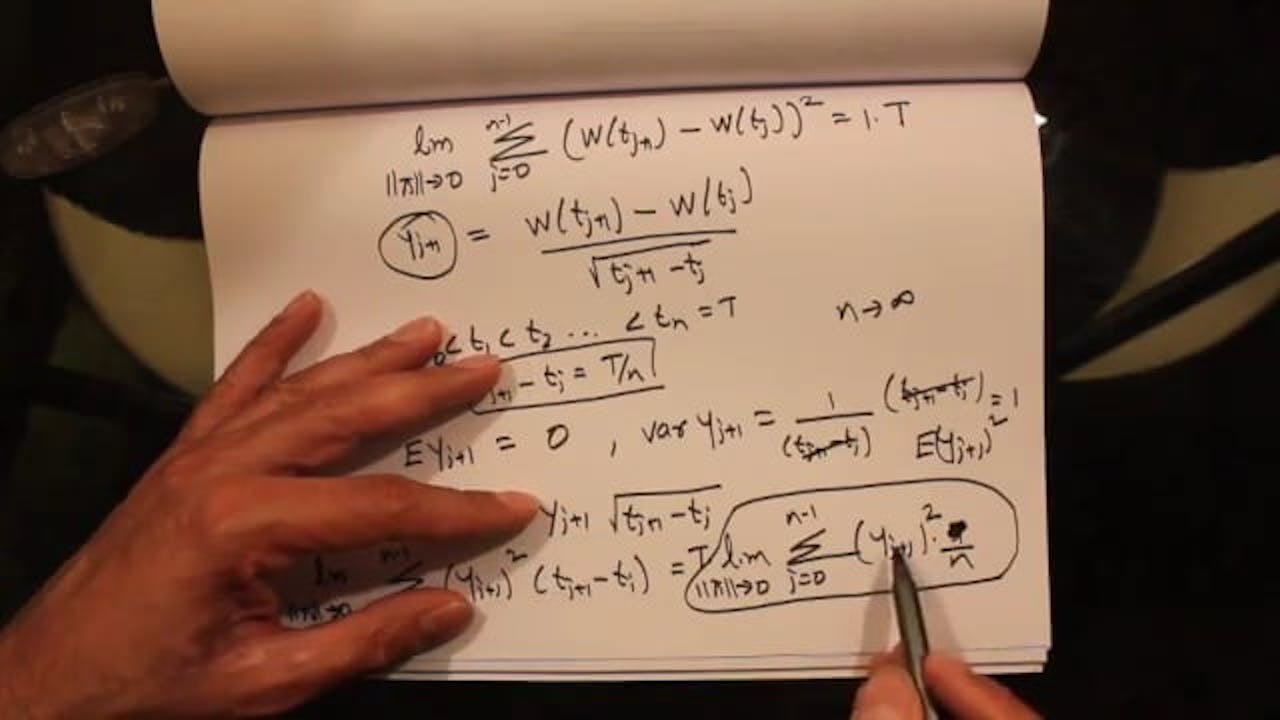 lim_{||π||→0} Σ_{j=0}^{n-1} (W(t_{j+1}) - W(t_j))² = 1·T
Y_{j+1} = (W(t_{j+1}) - W(t_j)) / √(t_{j+1} - t_j)
0 < t_1 < t_2 ... < t_n = T n→∞
j+1 - t_j = T/n
E Y_{j+1} = 0 , var Y_{j+1} = 1/(t_{j+1} - t_j) (t_{j+1} - t_j) = 1
E(Y_{j+1})²
Y_{j+1} √(t_{j+1} - t_j)
lim_{||π||→0} Σ^{n-1} (Y_{j+1})² (t_{j+1} - t_j) = T lim_{||π||→0} Σ_{j=0}^{n-1} (Y_{j+1})² · /n